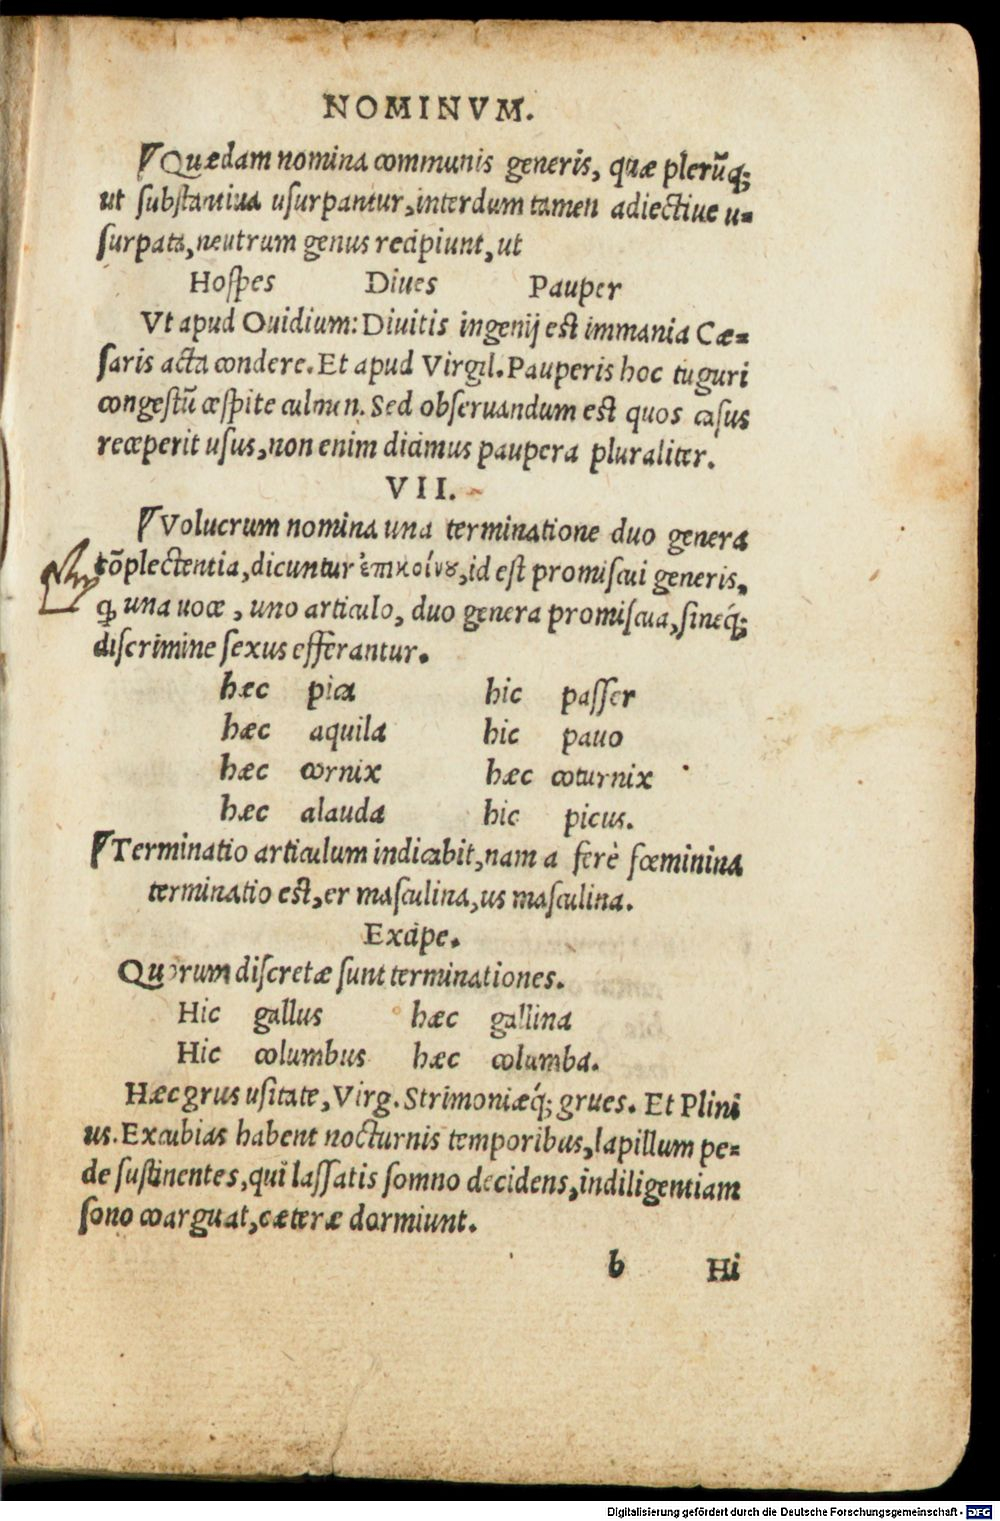 NOMINVM.
¶Quædam nomina communis generis, quæ plerūq;
ut substantiua usurpantur, interdum tamen adiectiue u-
surpata, neutrum genus recipiunt, ut
Hospes Diues Pauper
Vt apud Ouidium: Diuitis ingenij est immania Cæ-
saris acta condere. Et apud Virgil. Pauperis hoc tuguri
congestū cespite culmen. Sed obseruandum est quos casus
receperit usus, non enim dicimus paupera pluraliter.
VII.
¶Volucrum nomina una terminatione duo genera
cōplectentia, dicuntur ἐπικοίνου, id est promiscui generis,
ꝙ una uoce, uno articulo, duo genera promiscua, sineq́;
discrimine sexus efferantur.
hæc pica hic passer
hæc aquila hic pauo
hæc cornix hæc coturnix
hæc alauda hic picus.
¶Terminatio articulum indicabit, nam a ferè fœminina
terminatio est, er masculina, us masculina.
Excipe.
Quorum discretæ sunt terminationes.
Hic gallus hæc gallina
Hic columbus hæc columba.
Hæc grus usitate, Virg. Strimoniæq́; grues. Et Plini
us. Excubias habent nocturnis temporibus, lapillum pe-
de sustinentes, qui lassatis somno decidens, indiligentiam
sono coarguat, cæteræ dormiunt.
b Hi
Digitalisierung gefördert durch die Deutsche Forschungsgemeinschaft - DFG